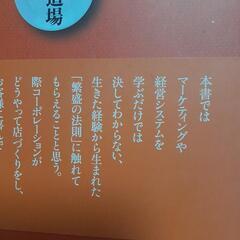 道場
本書では
マーケティングや
経営システムを
学ぶだけでは
決してわからない、
生きた経験から生まれた
「繁盛の法則」に触れて
もらえることと思う。
際コーポレーションが
どうやって店づくりをし、